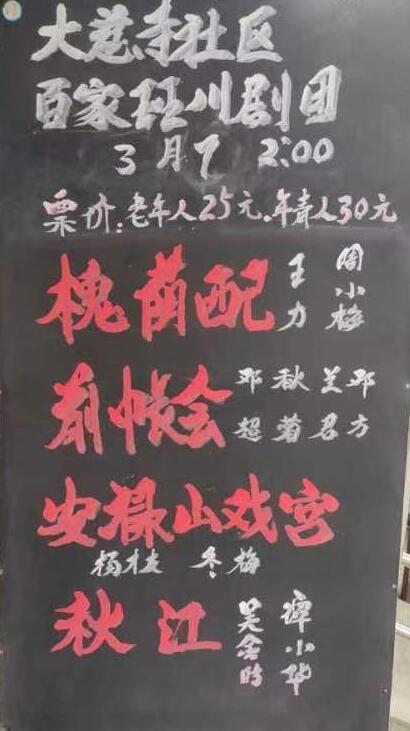 大慈寺社区
百家班川剧团
3月7 2:00
票价:老年人25元.年青人30元
槐荫配 王力 周小梅
前帐会 邓超 秋菊 兰君 邓方
安禄山戏宫
杨枝 冬梅
秋江 吴金时 谭小华